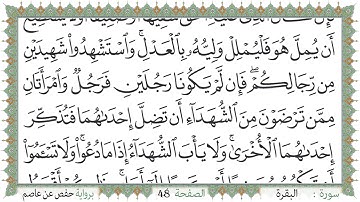 أَن يُمِلَّ هُوَ فَلْيُمْلِلْ وَلِيُّهُۥ بِٱلْعَدْلِ ۚ وَٱسْتَشْهِدُوا۟ شَهِيدَيْنِ
مِن رِّجَالِكُمْ ۖ فَإِن لَّمْ يَكُونَا رَجُلَيْنِ فَرَجُلٌ وَٱمْرَأَتَانِ
مِمَّن تَرْضَوْنَ مِنَ ٱلشُّهَدَآءِ أَن تَضِلَّ إِحْدَىٰهُمَا فَتُذَكِّرَ
إِحْدَىٰهُمَا ٱلْأُخْرَىٰ ۚ وَلَا يَأْبَ ٱلشُّهَدَآءُ إِذَا مَا دُعُوا۟ ۚ وَلَا تَسْـَٔمُوٓا۟
سورة : البقرة الصفحة 48 برواية حفص عن عاصم